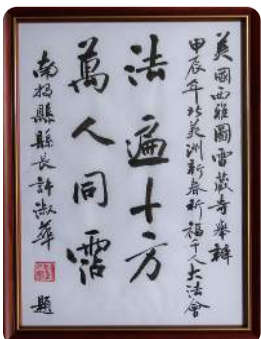 美國西雅圖雷藏寺舉辦
甲辰年北美洲新春祈福千人大法會
法遍十方
萬人同霑
南投縣縣長許淑華 題